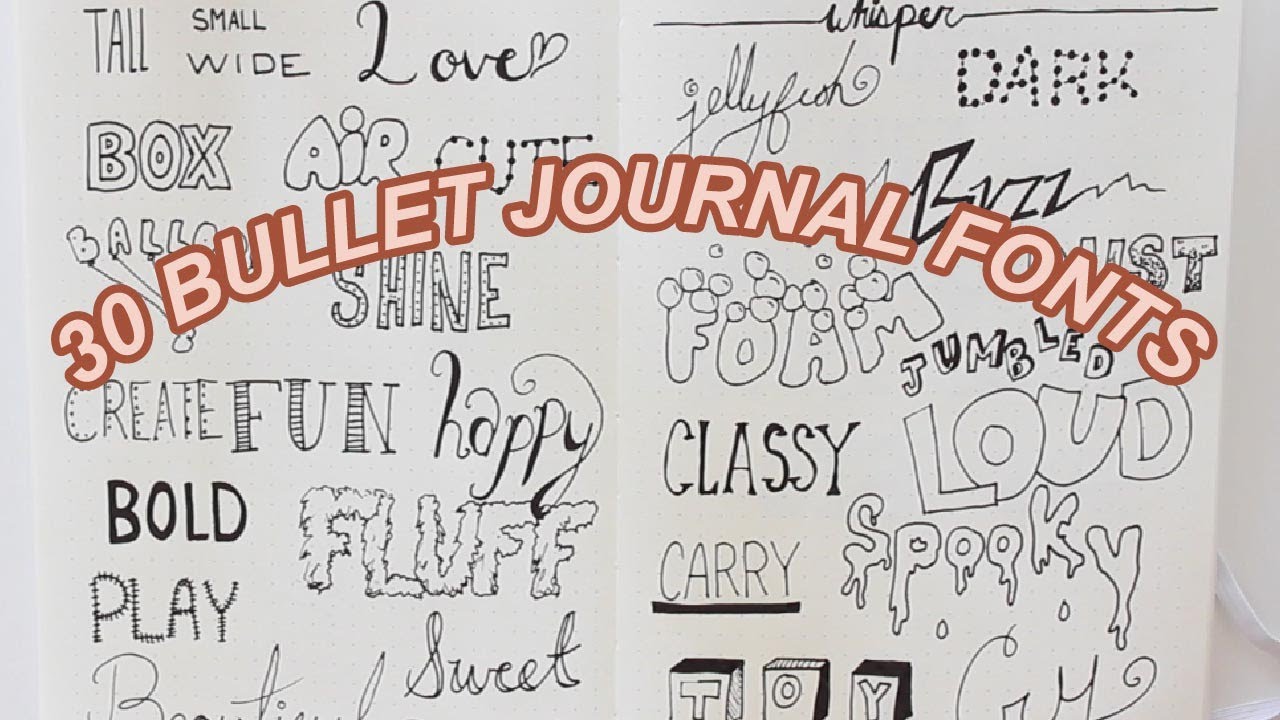 TALL SMALL WIDE Love
BOX AiR CUTE
SHINE
CREATE FUN happy
BOLD FLUFF
PLAY
Sweet
Beautiful
whisper
jellyfish DARK
Buzz
FOAM
JUMBLED
CLASSY LOUD
CARRY SPOOKY
TOY
30 BULLET JOURNAL FONTS